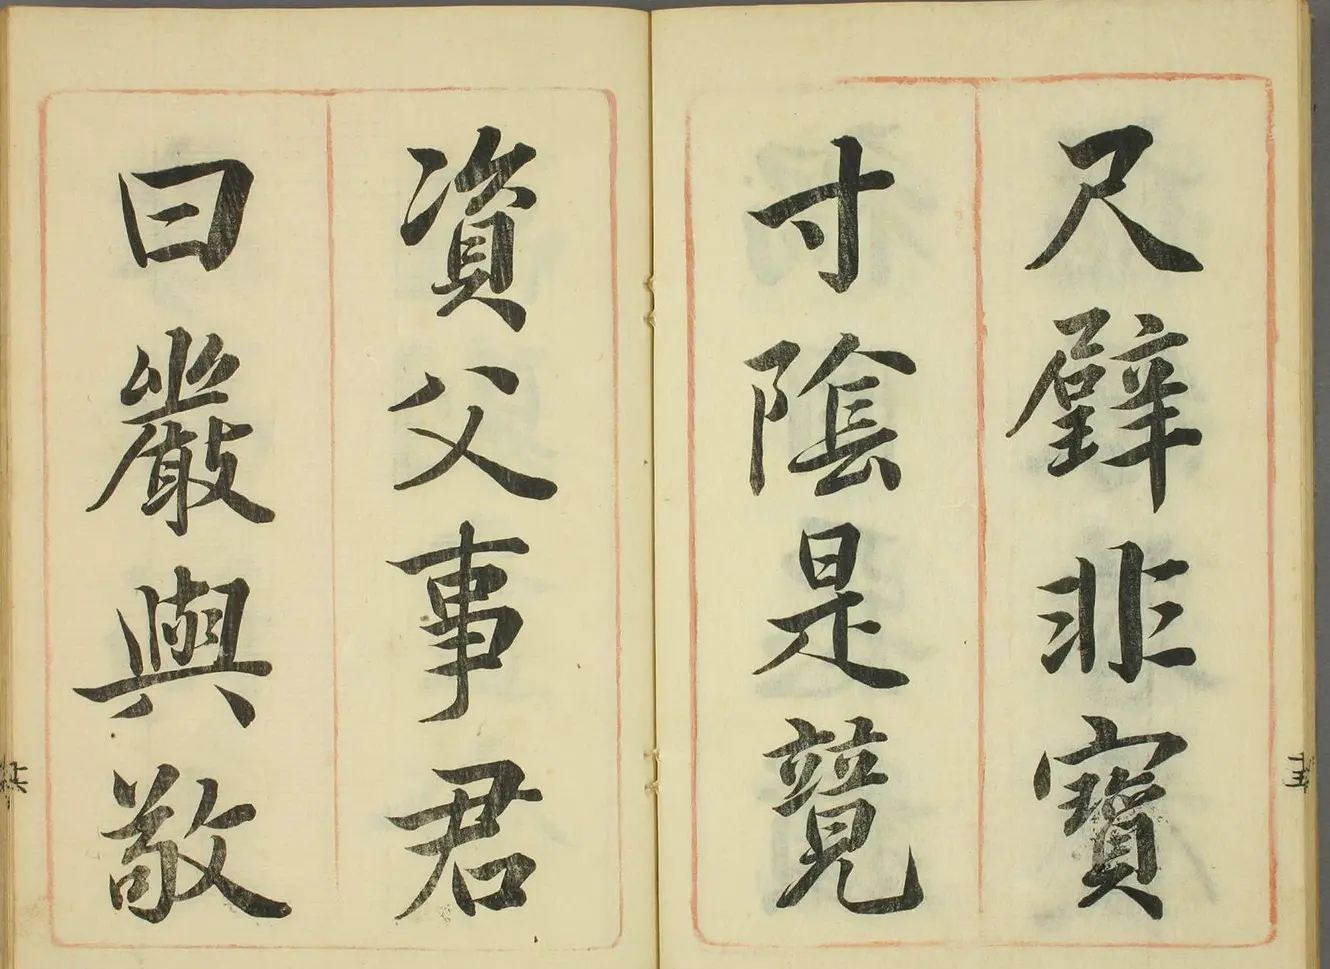 尺璧非寶
寸陰是競
資父事君
曰嚴與敬